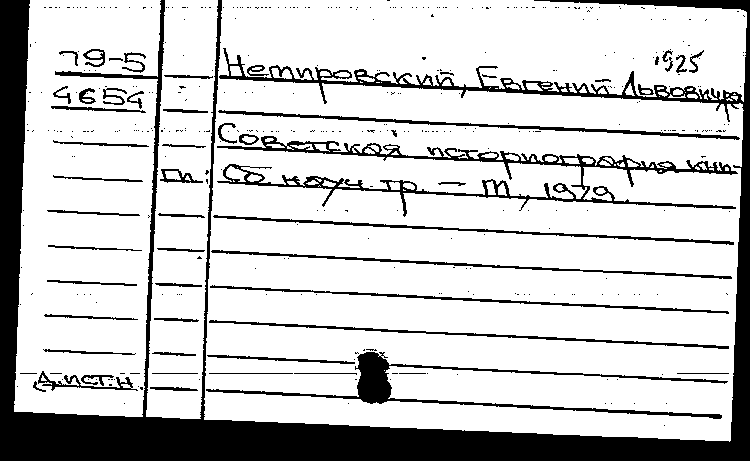 79-5
4654
1925
Немировский, Евгений Львович, ред.
Советская историография кни-
ги: Сб науч. тр. — М., 1979.
Д.ист.н.